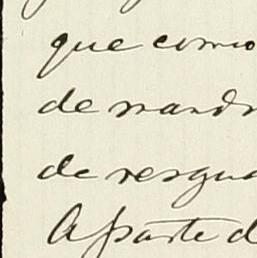 que como
de mandr
de resgua
A parte d